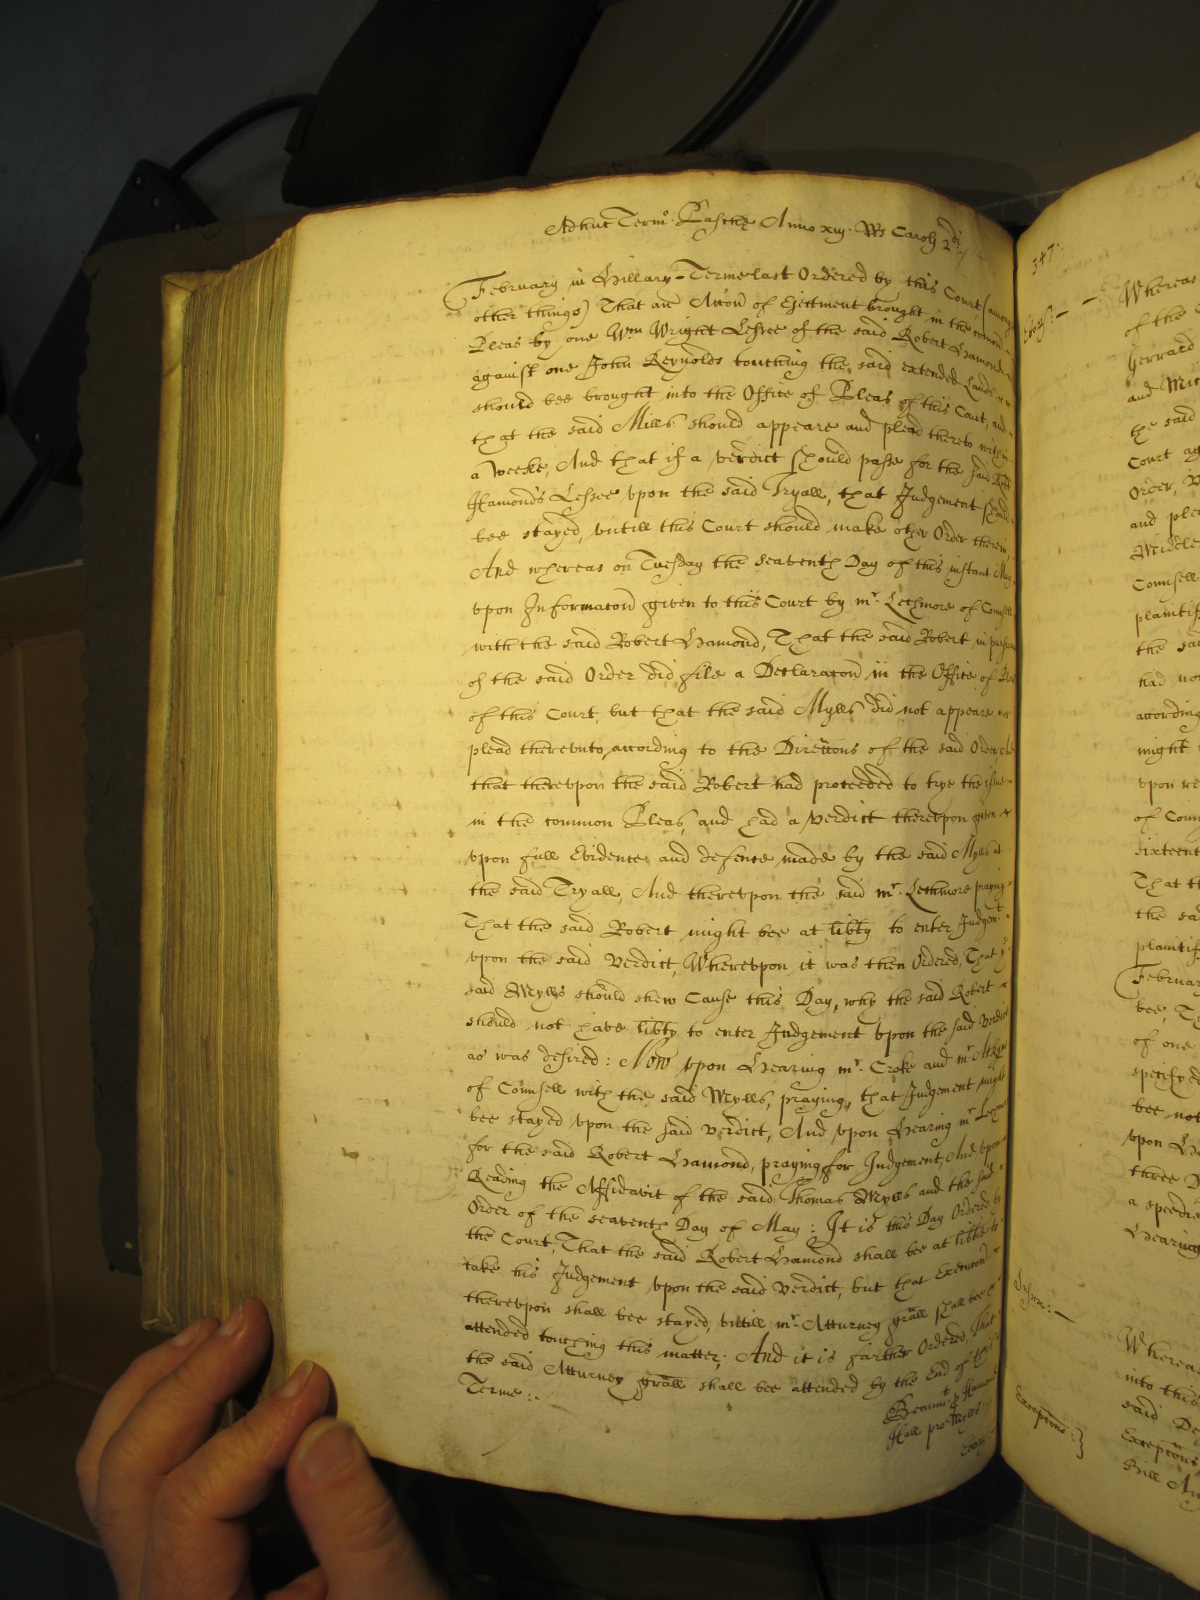 Adhuc Term. Pasche Anno xiij. Rs Caroli 2di.
February in Hillary-Terme last Ordered by this Court (
other things) That an Accon of Ejectment brought in the comon
Pleas by one Wm Wright Lessee of the said Robert Hamond
against one John Reynolds touching the said extended Lands
should bee brought into the Office of Pleas of this Court, and
that the said Mills should appeare and plead thereto within
a Weeke, And that if a verdict should passe for the said Robt
Hamonds Lessee vpon the said Tryall, that Judgement should
bee stayed, vntill this Court should make other Order therein,
And whereas on Tuesday the seaventh Day of this instant May
vpon Informacon given to this Court by mr. Lechmore of Counsell
with the said Robert Hamond, That the said Robert in
of the said Order did file a Declaracon in the Office of Pleas
of this Court, but that the said Mylls did not appeare nor
plead therevnto according to the Direccons of the said Order, And
that therevpon the said Robert had proceeded to trye the issue
in the common Pleas, and had a verdict therevpon given
vpon full Evidence and defence made by the said Mylls at
the said Tryall, And therevpon the said mr. Lechmore praying
That the said Robert might bee at libty to enter Judgemt
vpon the said verdict, Wherevpon it was then Ordered, That ye
said Mylls should shew Cause this Day, why the said Robert
should not have libty to enter Judgement vpon the said verdict
as was desired: Now vpon Hearing mr. Croke and mr
of Counsell with the said Mylls, praying, that Judgement might
bee stayed vpon the said verdict, And vpon Hearing mr
for the said Robert Hamond, praying for Judgement, And vpon
Reading the Affidavit of the said Thomas Mylls and the said
Order of the seaventh Day of May: It is this Day Ordered by
the Court, That the said Robert Hamond shall bee at libtie to
take his Judgement vpon the said verdict, but that Execucon
therevpon shall bee stayed, vntill mr. Attorney grall shall bee
attended touching this matter; And it is farther Ordered, That
the said Attorney grall shall bee attended by the End of this
Terme:.
Beaumt p Hamond
Hall pro Mylls:.
347.
Whereas
of the
Gerrard
and
the said
Court
Order,
and
Counsell
the
had not
might
vpon
of
That
the
bee,
of one
bee not
vpon
three
a speedie
Hearing
Whereas
into this
said
Excepcons:}
Excepcons
Bill